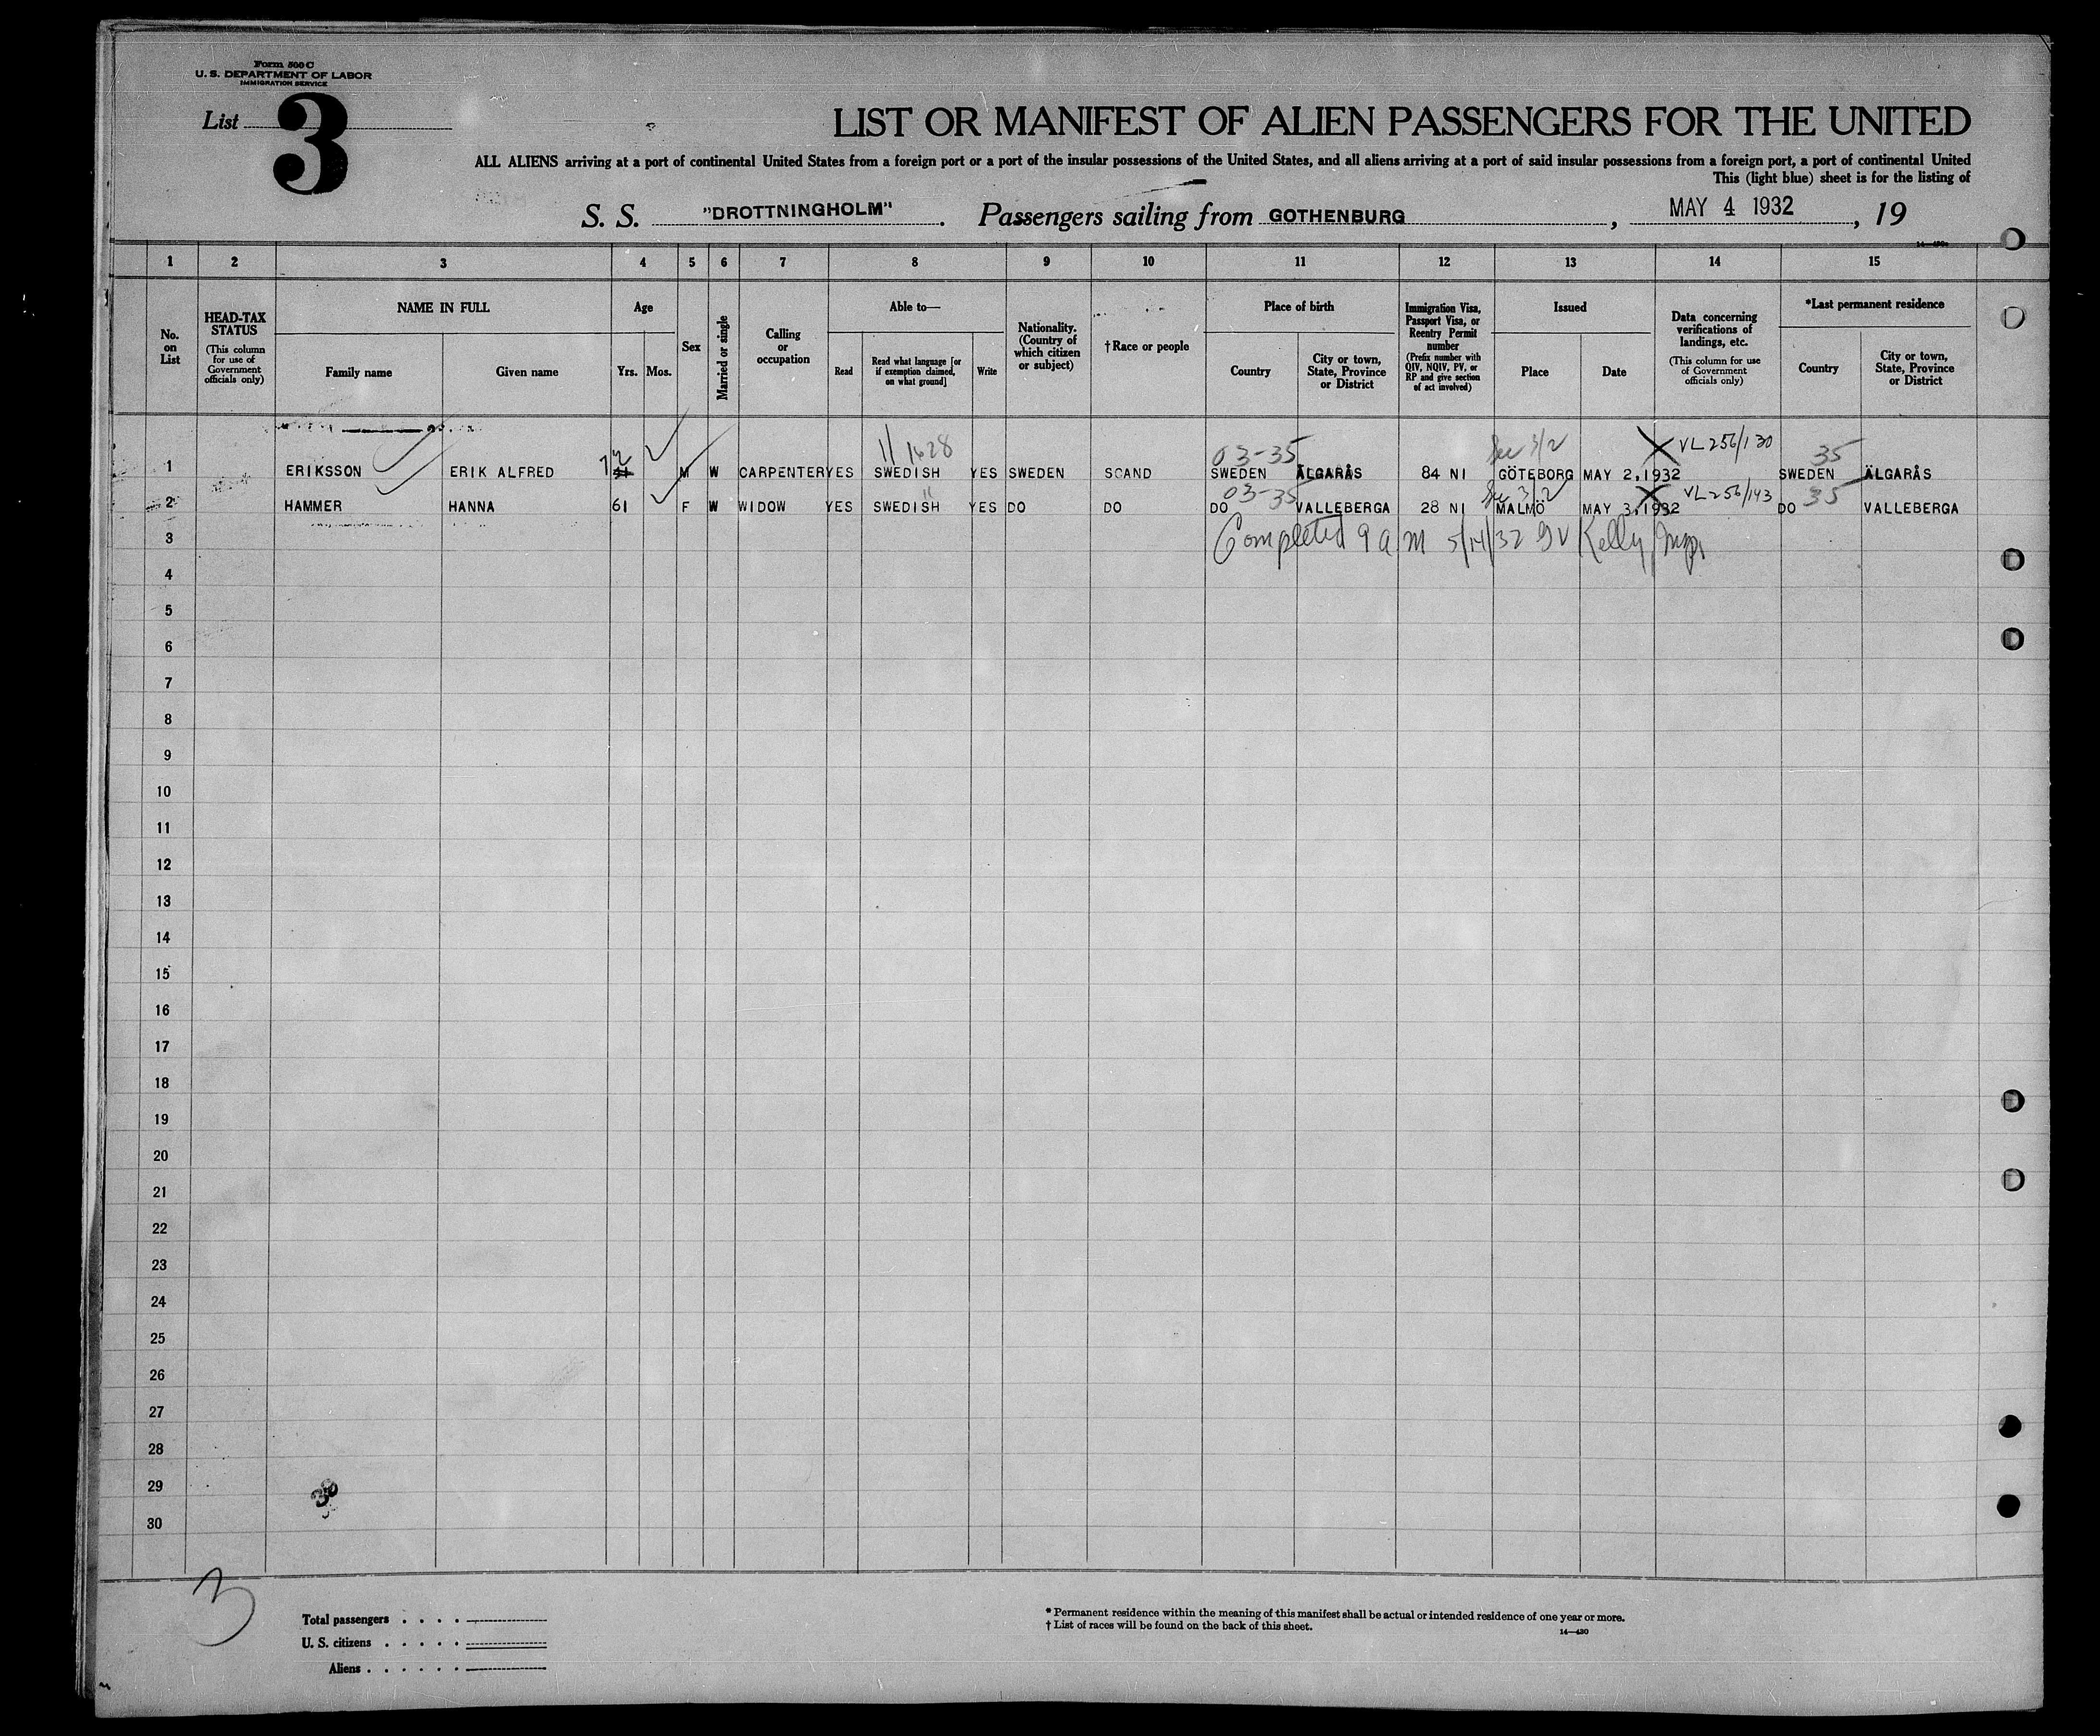 Form 500 C
U. S. DEPARTMENT OF LABOR
IMMIGRATION SERVICE
List 3
LIST OR MANIFEST OF ALIEN PASSENGERS FOR THE UNITED
ALL ALIENS arriving at a port of continental United States from a foreign port or a port of the insular possessions of the United States, and all aliens arriving at a port of said insular possessions from a foreign port, a port of continental United
This (light blue) sheet is for the listing of
S. S. "DROTTNINGHOLM". Passengers sailing from GOTHENBURG, MAY 4 1932, 19
14—430
1 2 3 4 5 6 7 8 9 10 11 12 13 14 15
No. on List
HEAD-TAX STATUS
(This column for use of Government officials only)
NAME IN FULL
Family name
Given name
Age
Yrs.
Mos.
Sex
Married or single
Calling or occupation
Able to—
Read
Read what language [or if exemption claimed, on what ground]
Write
Nationality. (Country of which citizen or subject)
†Race or people
Place of birth
Country
City or town, State, Province or District
Immigration Visa, Passport Visa, or Reentry Permit number
(Prefix number with QIV, NQIV, PV, or RP and give section of act involved)
Issued
Place
Date
Data concerning verifications of landings, etc.
(This column for use of Government officials only)
*Last permanent residence
Country
City or town, State, Province or District
11 1628 03-35 Sec 3/2 X VL 256/130 35
1 ERIKSSON ERIK ALFRED 72 M W CARPENTER YES SWEDISH YES SWEDEN SCAND SWEDEN ÄLGARÅS 84 NI GÖTEBORG MAY 2,1932 SWEDEN ÄLGARÅS
11 03-35 Sec 3/2 X VL 256/143 35
2 HAMMER HANNA 61 F W WIDOW YES SWEDISH YES DO DO DO VALLEBERGA 28 NI MALMÖ MAY 3,1932 DO VALLEBERGA
3 Completed 9 a m 5/14/32 Kelly Insp.
4
5
6
7
8
9
10
11
12
13
14
15
16
17
18
19
20
21
22
23
24
25
26
27
28
29
30
3
Total passengers . . . .
U. S. citizens . . . . .
Aliens . . . . . .
* Permanent residence within the meaning of this manifest shall be actual or intended residence of one year or more.
† List of races will be found on the back of this sheet.
14—430